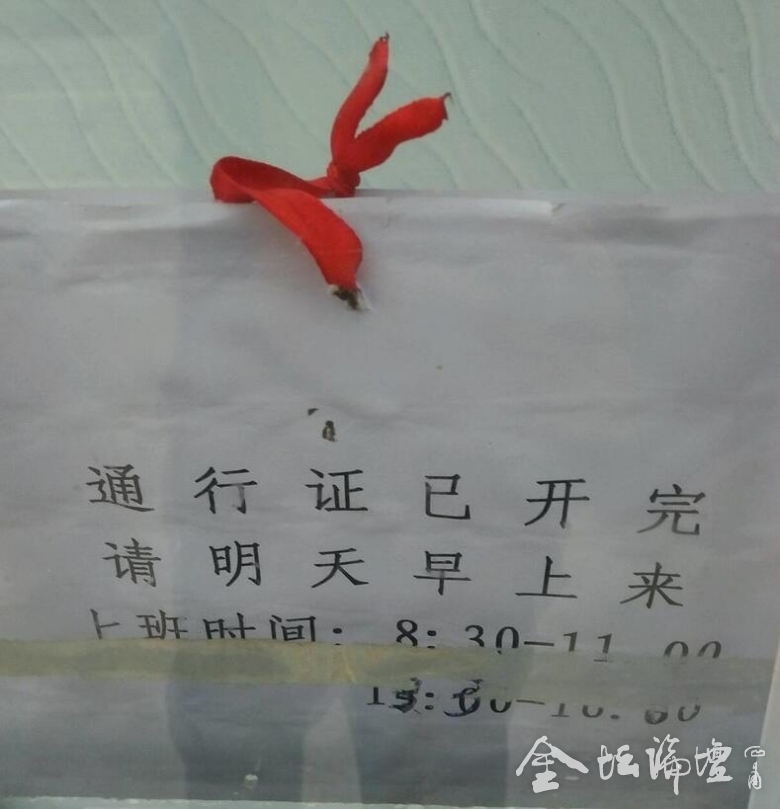 通行证已开完
请明天早上来
上班时间: 8:30-11:00
金坛论坛